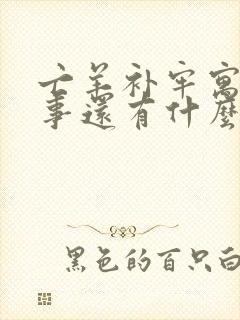 亡羊补牢寓
事还有什麽
黑色的百只白